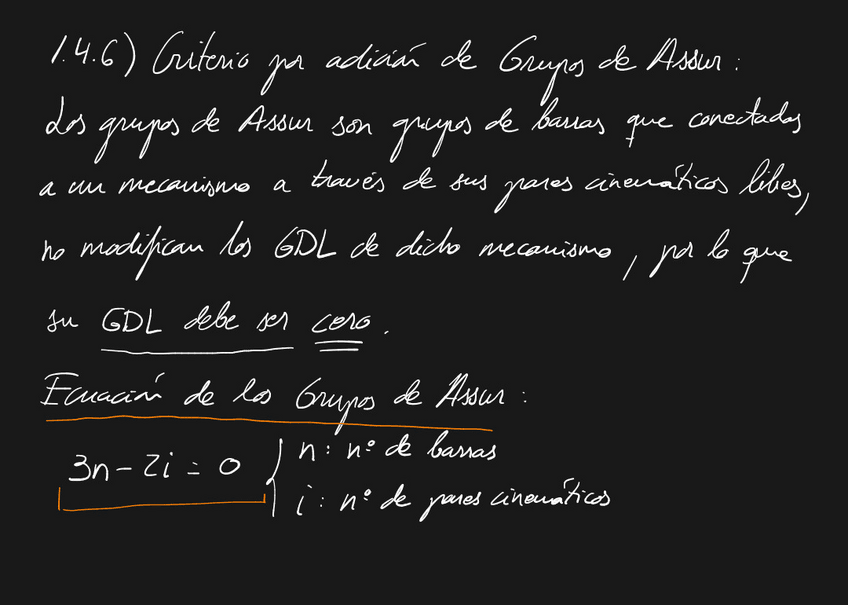 1.4.6) Criterio por adición de Grupos de Assur:
Los grupos de Assur son grupos de barras que conectadas
a un mecanismo a través de sus pares cinemáticos libres,
no modifican los GDL de dicho mecanismo, por lo que
su GDL debe ser cero.
Ecuación de los Grupos de Assur:
3n - 2i = 0 { n: nº de barras
i: nº de pares cinemáticos